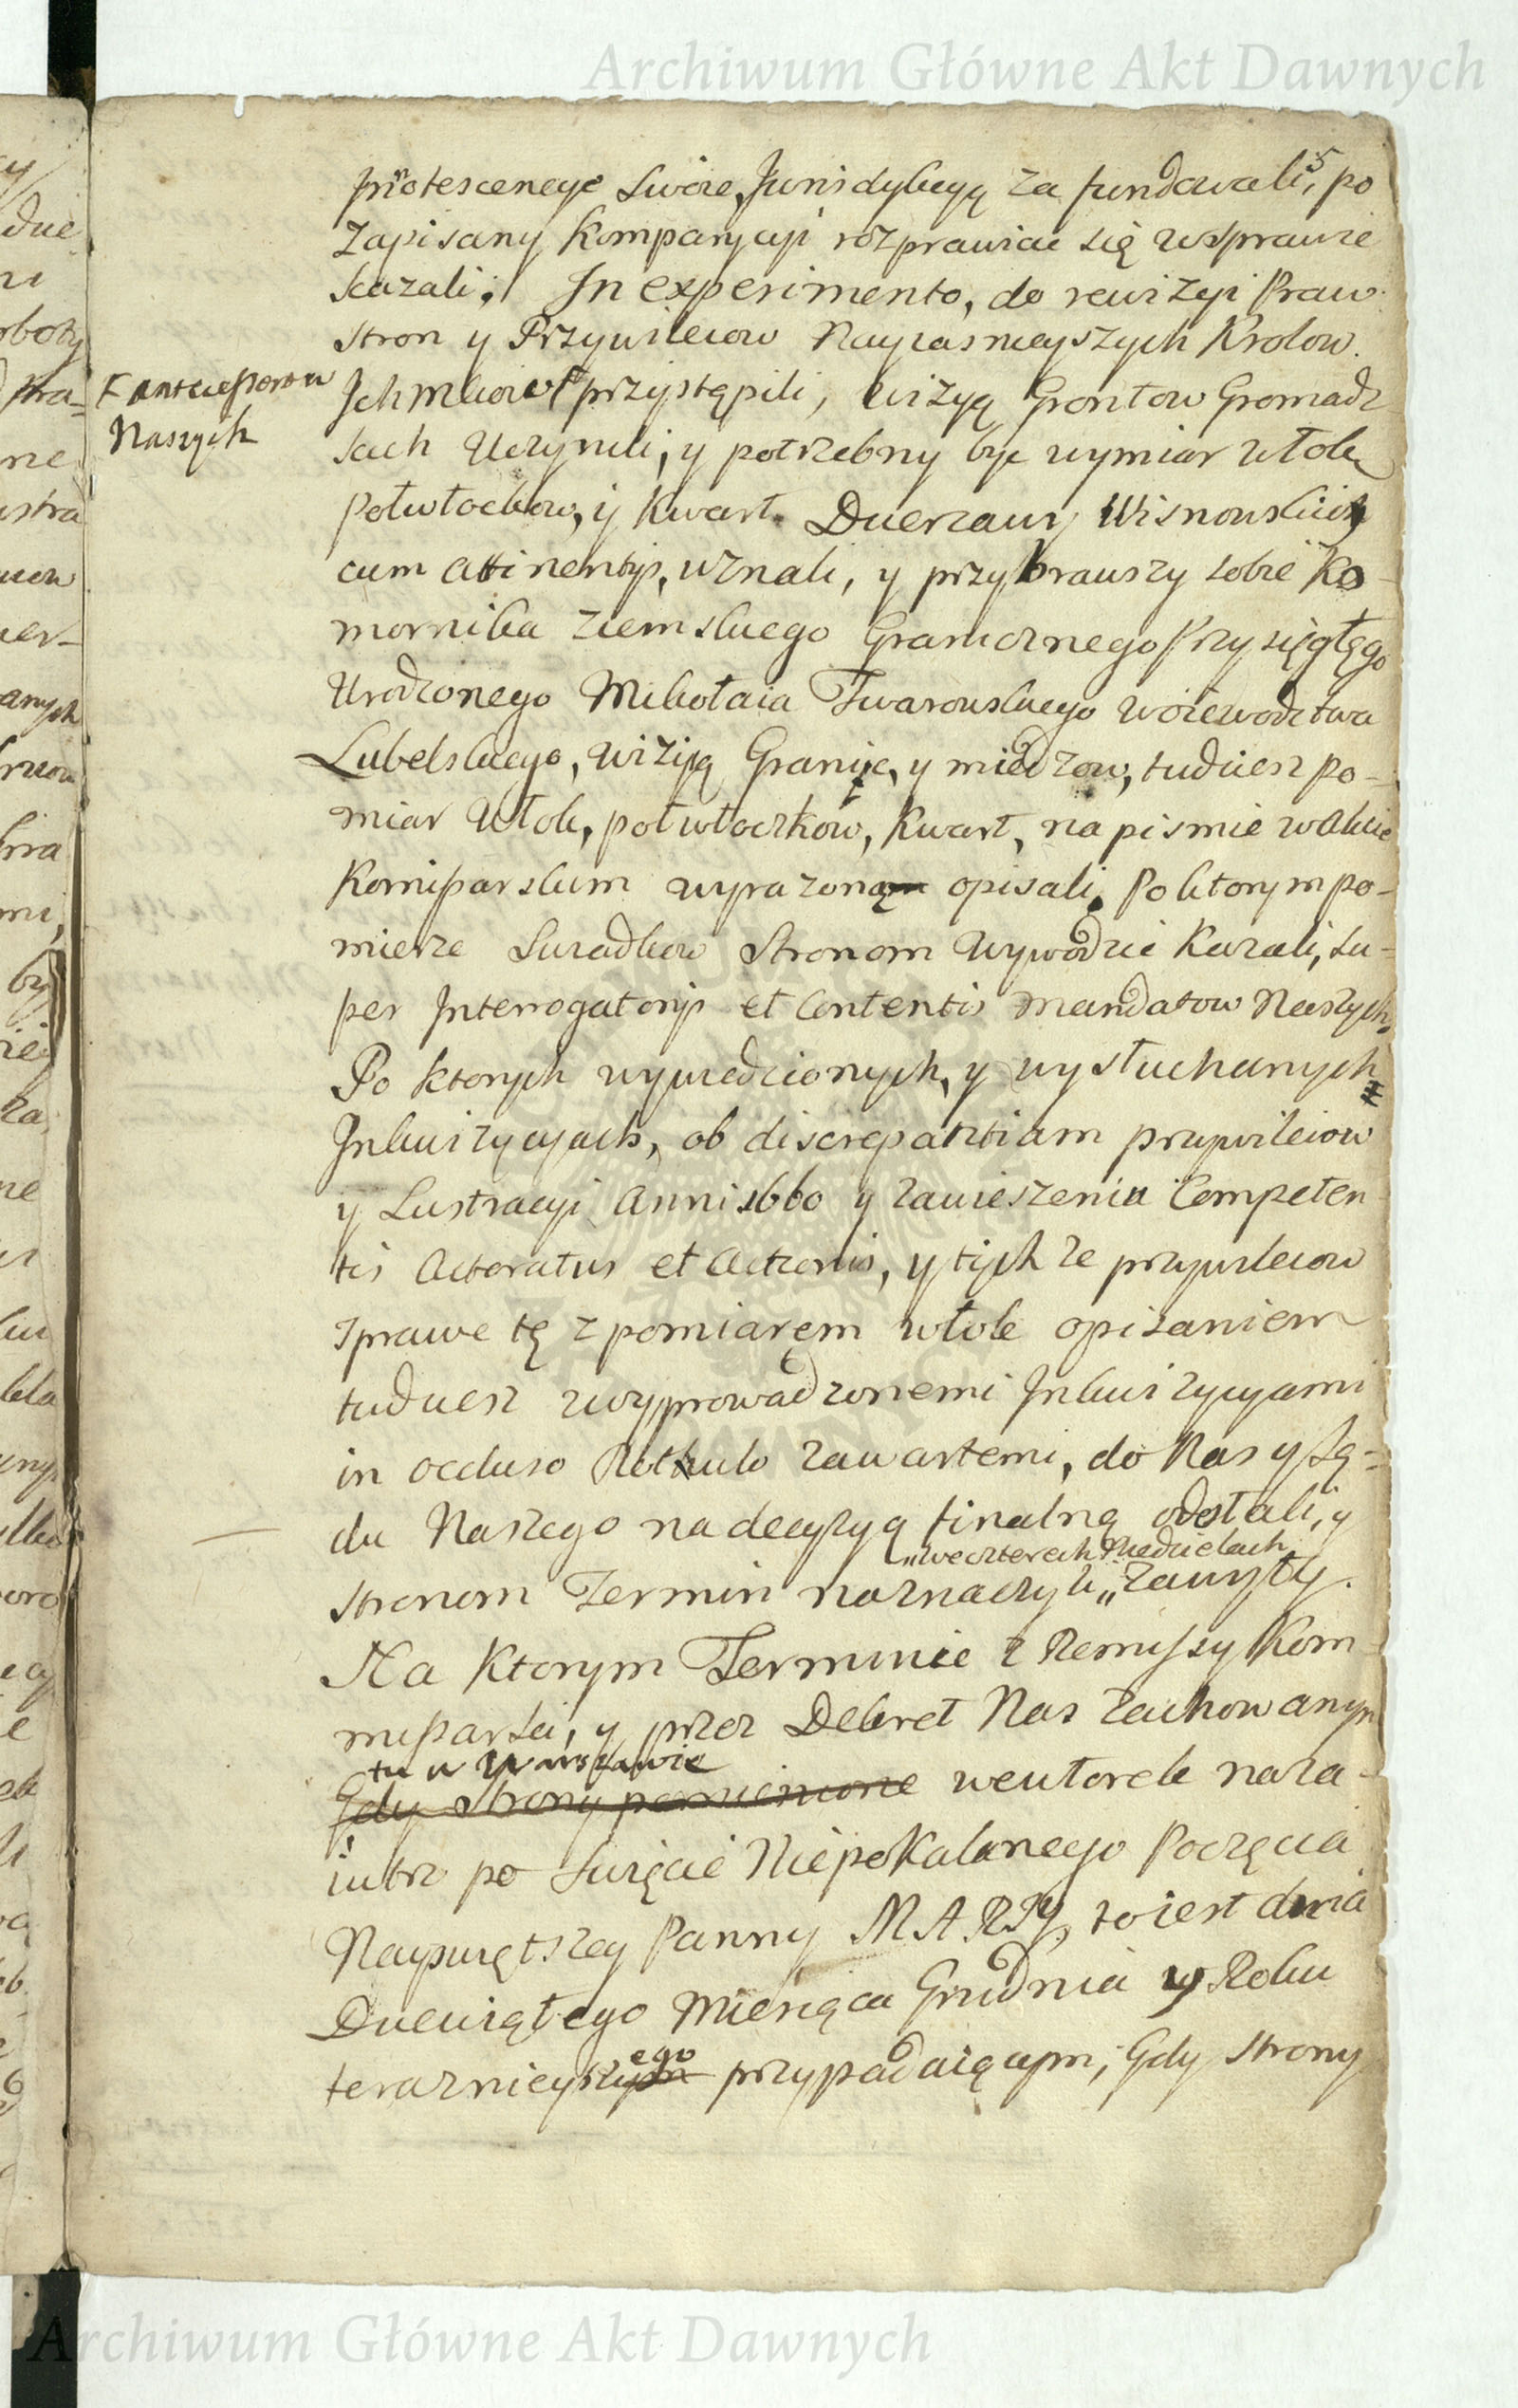 Archiwum Główne Akt Dawnych
5
swoię Jurisdykcyą za fundowali, po
Zapisany Komparycyi rozprawiać się wsprawie
kazali, In experimento, do rewizyi Praw
stron y Przywileiow Nayiasnieyszych Krolow
F Antecessorow
Naszych
Ich Mciow F przystąpili, wizyą Grontow Gromadz
kich Uczynili, y potrzebny być wymiar włok
Połwłockow, y Kwart Dzierzawy Wisnowskiey
cum attinentijs, uznali, y przybrawszy sobie Ko-
mornika Ziemskiego Granicznego Przysięgłęgo
Urodzonego Mikołaia Twarowskiego woiewodztwa
Lubelskiego, wizyą Granic, y miedzow, tudziesz po-
miar Włok, połwłoczkow, Kwart, na pismie w Akcie
Kommissarskim wyrazoną opisali, Po ktorym po-
mierze Swiadkow Stronom Wywodzic Kazali, su-
per Interrogatorijs et Contentis Mandatow Naszych.
Po ktorych wywiedzionych, y wysłuchanych
Inkwizycyach, ob discrepantiam przywileiow
y Lustracyi Anni 1660 y zawieszenia Competen
tis Actoratus et Actionis, y tychze przywileiow
sprawe tę z pomiaręm włok opisaniem
tudziesz zwyprowadzonemi Inkwizycyami
in occluso Rotulo zawartemi, do Nas y Są-
du Naszego na decyzyą finalną odesłali, y
„we czterech Niedzielach
stronom Termin naznaczyli „ zawyty.
Na Ktorym Terminie z Remissy Kom-
missarskiey, y przez Dekret Nas zachowanym
tu w Warszawie
Gdy Strony pomienione we wtorek naza-
iutrz po swięcie Niepokalanego Poczęcia
Nayswiętszey Panny MARYI, to iest dnia
Dziewiątego Miesiąca Grudnia w Roku
ego
teraznieyszym przypadaiącym, Gdy strony
Archiwum Główne Akt Dawnych